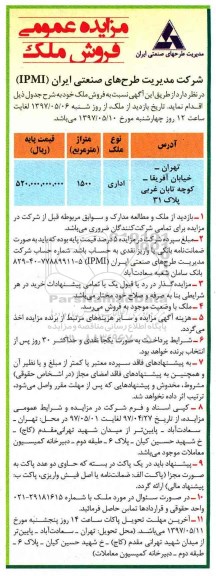 مدیریت طرح‌های صنعتی ایران
مزایده عمومی
فروش ملک
شرکت مدیریت طرح‌های صنعتی ایران (IPMI)
در نظر دارد از طریق این آگهی نسبت به فروش ملک خود به شرح جدول ذیل
اقدام نماید. تاریخ بازدید از ملک، از روز شنبه ۱۳۹۷/۰۵/۰۶ لغایت
ساعت ۱۲ روز چهارشنبه مورخ ۱۳۹۷/۰۵/۱۰ می‌باشد.
آدرس
نوع ملک
متراژ (مترمربع)
قیمت پایه (ریال)
تهران ـ
خیابان آفریقا ـ
کوچه تابان غربی
پلاک ۳۱
اداری
۱۵۰۰
۵۲۰,۰۰۰,۰۰۰,۰۰۰
۱ـ بازدید از ملک و مطالعه مدارک و سوابق مربوطه قبل از شرکت در
مزایده برای تمامی شرکت‌کنندگان ضروری می‌باشد.
۲ـ مبلغ سپرده شرکت در مزایده ۵ درصد قیمت پایه بوده که باید به صورت
ضمانت‌نامه بانکی یا واریز نقدی به حساب باشد. شماره حساب شرکت
مدیریت طرح‌های صنعتی ایران (IPMI)
بانک سامان شعبه سعادت‌آباد.
۳ـ مزایده‌گذار در رد یا قبول یک یا تمامی پیشنهادات خرید در هر
شرایطی بنا به صرفه و صلاح خود مختار می‌باشد.
۴ـ ملک با وضعیت موجود به فروش می‌رسد.
۵ـ هزینه آگهی مزایده و سایر هزینه‌های مرتبط از برنده مزایده اخذ
می‌گردد.
۶ـ شرایط پرداخت به صورت یکجا نقدی و حداکثر ۳۰ روز پس از
انتخاب برنده خواهد بود.
۷ـ به پیشنهادهای فاقد سپرده معتبر یا کمتر از مبلغ و یا نظیر آن
و همچنین به پیشنهادهای فاقد امضای مجاز (در اشخاص حقوقی)
مشروط، مخدوش و پیشنهادهایی که پس از مهلت مقرر واصل می‌شود،
ترتیب اثر داده نخواهد شد.
۸ـ کپی اسناد و فرم شرکت در مزایده و شرایط عمومی
مزایده، از تاریخ ۹۷/۰۴/۲۷ لغایت ۹۷/۰۵/۰۱ در محل: تهران ـ
سعادت‌آباد ـ پایین‌تر از میدان شهید تهرانی‌مقدم (کاج) ـ
خ شهید حسین کیان ـ پلاک ۶ ـ طبقه دوم ـ دبیرخانه کمیسیون
معاملات موجود می‌باشد.
۹ـ پیشنهاد باید در یک پاکت در بسته که حاوی دو عدد پاکت به
صورت مجزا (پاکت الف: ضمانت‌نامه یا اصل فیش واریزی، پاکت ب:
پیشنهاد مالی) ارائه گردد.
۱۰ـ در صورت سئوال در مورد ملک با شماره ۲۹۱۸۱۶۱۵-۰۲۱
واحد حقوقی و قراردادها تماس حاصل فرمائید.
۱۱ـ آخرین مهلت تحویل پاکات ساعت ۱۴ روز پنجشنبه مورخ
۱۳۹۷/۰۵/۱۱ می‌باشد. (محل تحویل: تهران ـ سعادت‌آباد ـ پایین‌تر
از میدان شهید تهرانی مقدم (کاج) ـ خ شهید حسین کیان ـ پلاک ۶ ـ
طبقه دوم ـ دبیرخانه کمیسیون معاملات)